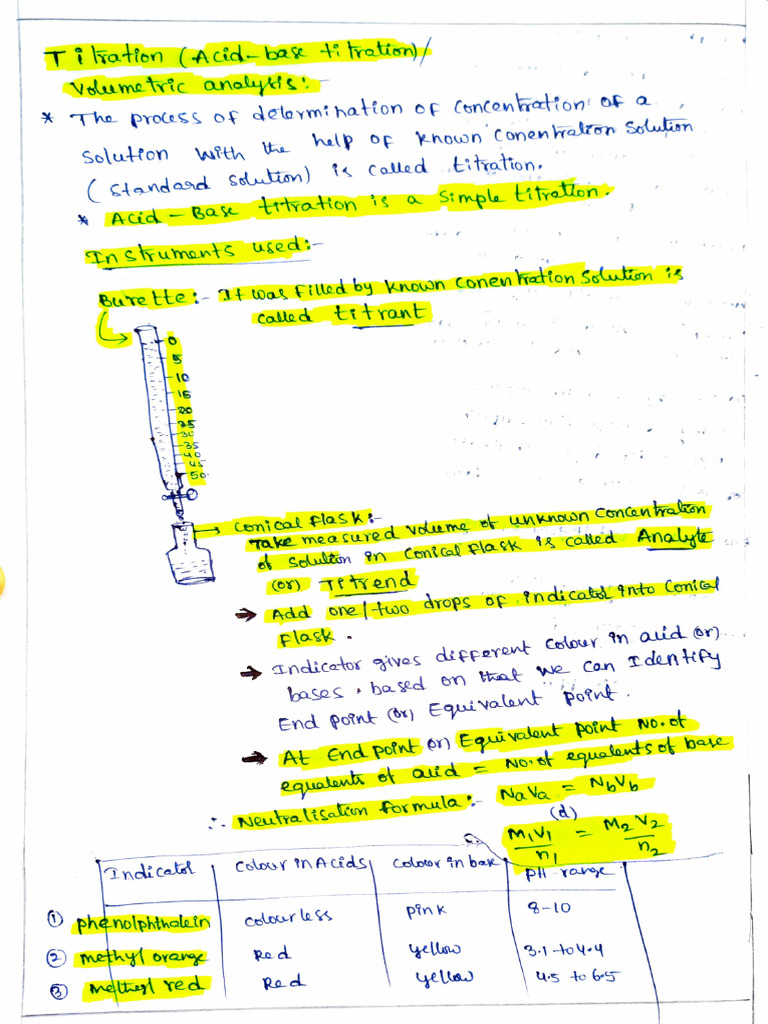 Titration (Acid-base titration)/
Volumetric analysis:-
* The process of determination of concentration of a
solution with the help of known conentration solution
(standard solution) is called titration.
* Acid-Base titration is a simple titration.
Instruments used:-
Burette:- It was filled by known conentration solution is
called titrant
0
5
10
15
20
25
30
35
40
45
50
Conical flask:-
Take measured volume of unknown concentration
of solution in conical flask is called Analyte
(or) Titrend
→ Add one/two drops of indicator into conical
flask.
→ Indicator gives different colour in acid (or)
bases, based on that we can Identify
End point (or) Equivalent point.
→ At End point (or) Equivalent point No. of
equalents of acid = No. of equalents of base
∴ Neutralisation formula:- NaVa = NbVb
(d)
M1V1/n1 = M2V2/n2
Indicator colour in Acids colour in base pH range
① phenolphthalein colourless pink 8-10
② methyl orange Red yellow 3.1 to 4.4
③ methyl red Red yellow 4.5 to 6.5